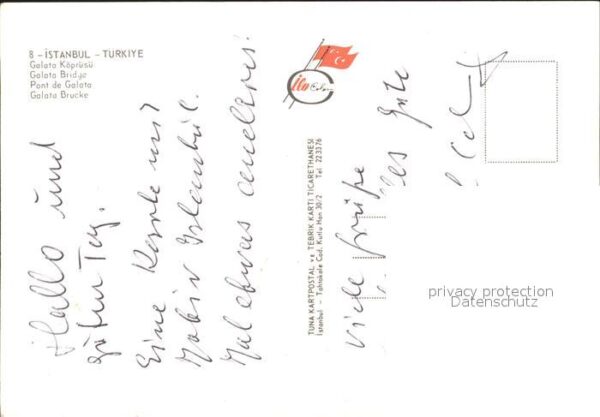 8 - İSTANBUL - TURKIYE
Galata Köprüsü
Galata Bridge
Pont de Galata
Galata Brucke
Hallo und
guten Tag.
Eine Karte mit
Istanbul.
Mal etwas anderes!
TUNA KARTPOSTAL ve TEBRIK KARTI TICARETHANESI
İstanbul - Tahtakale Cad. Kutlu Han 30/2 Tel. 223376
Viele Grüße
les Gute
privacy protection
Datenschutz